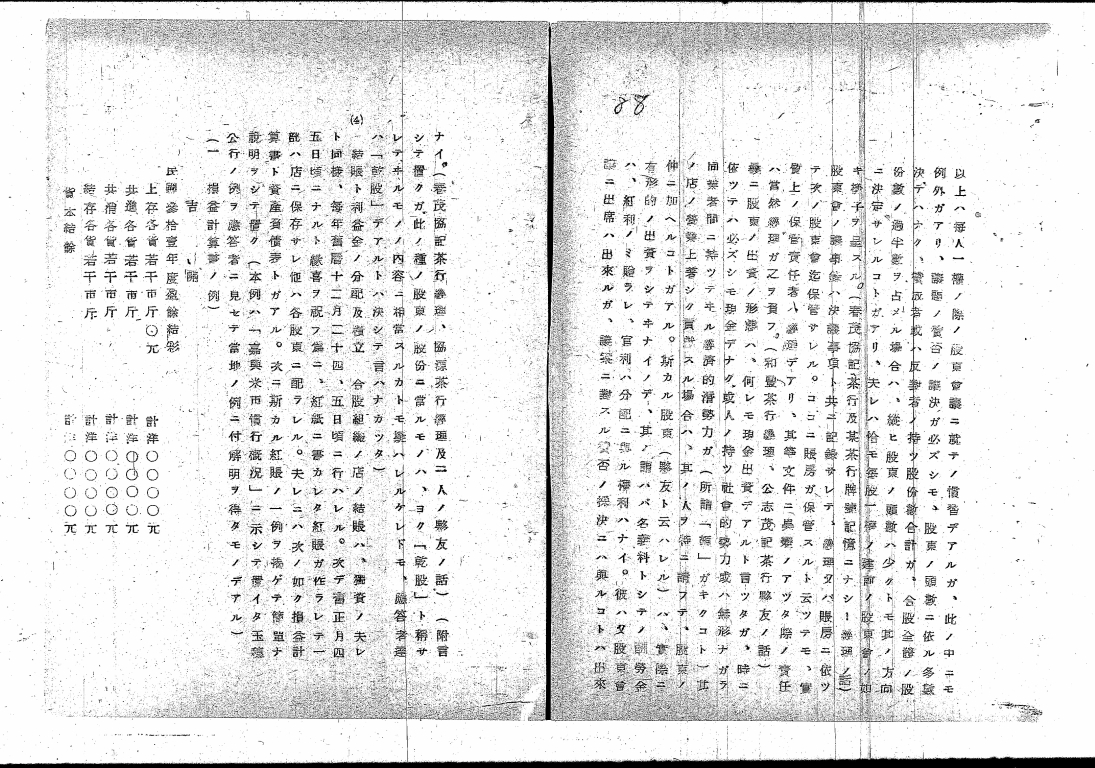 88
以上ハ每人一權ノ際ノ股東會議ニ就テノ慣習デアルガ、此ノ中ニモ
例外ガアリ、議題ノ贊否ノ議決ガ必ズシモ、股東ノ頭數ニ依ル多數
決デハナク、贊成者或ハ反對者ノ持ツ股份數合計ガ、合股全體ノ股
份數ノ過半數ヲ占メル場合ハ、縱ヒ股東ノ頭數ハ少クトモ其ノ方向
ニ決定サレルコトガアリ、夫レハ恰モ每股一權ノ建前ノ股東會ノ如
キ樣子ヲ呈スル。(春茂協記茶行及某茶行牌號記憶ニナシ―經理ノ話)
股東會ノ議事錄ハ決議事項ト共ニ記錄サレテ、經理又ハ賬房ニ依ツ
テ次ノ股東會迄保管サレル。ココニ賬房ガ保管スルト云ツテモ、實
質上ノ保管責任者ハ經理デアリ、其等文件ニ異變ノアツタ際ノ責任
ハ當然經理ガ之ヲ負フ。(和豐茶行經理、公志茂記茶行夥友ノ話)
ニ股東ノ出資ノ形態ハ、何レモ現金出資デアルト言ツタガ、時ニ
依ツテハ必ズシモ現金デナク、或人ノ持ツ社會的勢力或ハ無形ナガラ
同業者間ニ持ツテキル經濟的潛勢力ガ(所謂「顏」ガキクコト)其
ノ店ノ營業上著シク貢獻スル場合ハ、其ノ人ヲ特ニ請フテ、股東ノ
仲ニ加ヘルコトガアル。斯カル股東(夥友ト云ハレル)ハ、實際ニ
有形的ノ出資ヲシテキナイノデ、其ノ謂ハバ名義料トシテノ酬勞金
ハ、紅利ノミ贈ラレ、官利ハ分配ニ與ル權利ハナイ。彼ハ又股東會
議ニ出席ハ出來ルガ、議案ニ對スル贊否ノ採決ニハ與ルコトハ出來
ナイ。(春茂協記茶行經理、協源茶行經理及二人ノ夥友ノ話)(附言
シテ置クガ此ノ種ノ股東ノ股份ニ當ルモノハ、ヨク「乾股」ト稱サ
レテキルモノノ內容ニ相當スルカトモ疑ハレルケレドモ、應答者達
ハ「乾股」デアルトハ決シテ言ハナカツタ)
(4) 結賬ト利益金ノ分配及積立 合股組織ノ店ノ結賬ハ、獨資ノ夫レ
ト同樣、每年舊曆十二月二十四、五日頃ニ行ハレル。次デ翌正月四
五日頃ニナルト發喜ヲ祝フ爲ニ、紅紙ニ書カレタ紅賬ガ作ラレテ一
部ハ店ニ保存サレ他ハ各股東ニ配ラレル。夫レニハ次ノ如ク損益計
算書ト資產負債表トガアル。次ニ斯カル紅賬ノ一例ヲ揭ゲテ簡單ナ
說明ヲシテ置ク(本例ハ「嘉興米市慣行槪況」ニ示シテ置イタ玉穗
公行ノ例ヲ應答者ニ見セテ當地ノ例ニ付解明ヲ得タモノデアル)
(一 損益計算書ノ例)
吉
民國參拾壹年度盈餘結彩
上存各貨若干市斤〇元 計洋〇〇〇〇元
共進各貨若干市斤 計洋〇〇〇〇元
共沽各貨若干市斤 計洋〇〇〇〇元
結存各貨若干市斤 計洋〇〇〇〇元
貨本結餘 計洋〇〇〇〇元